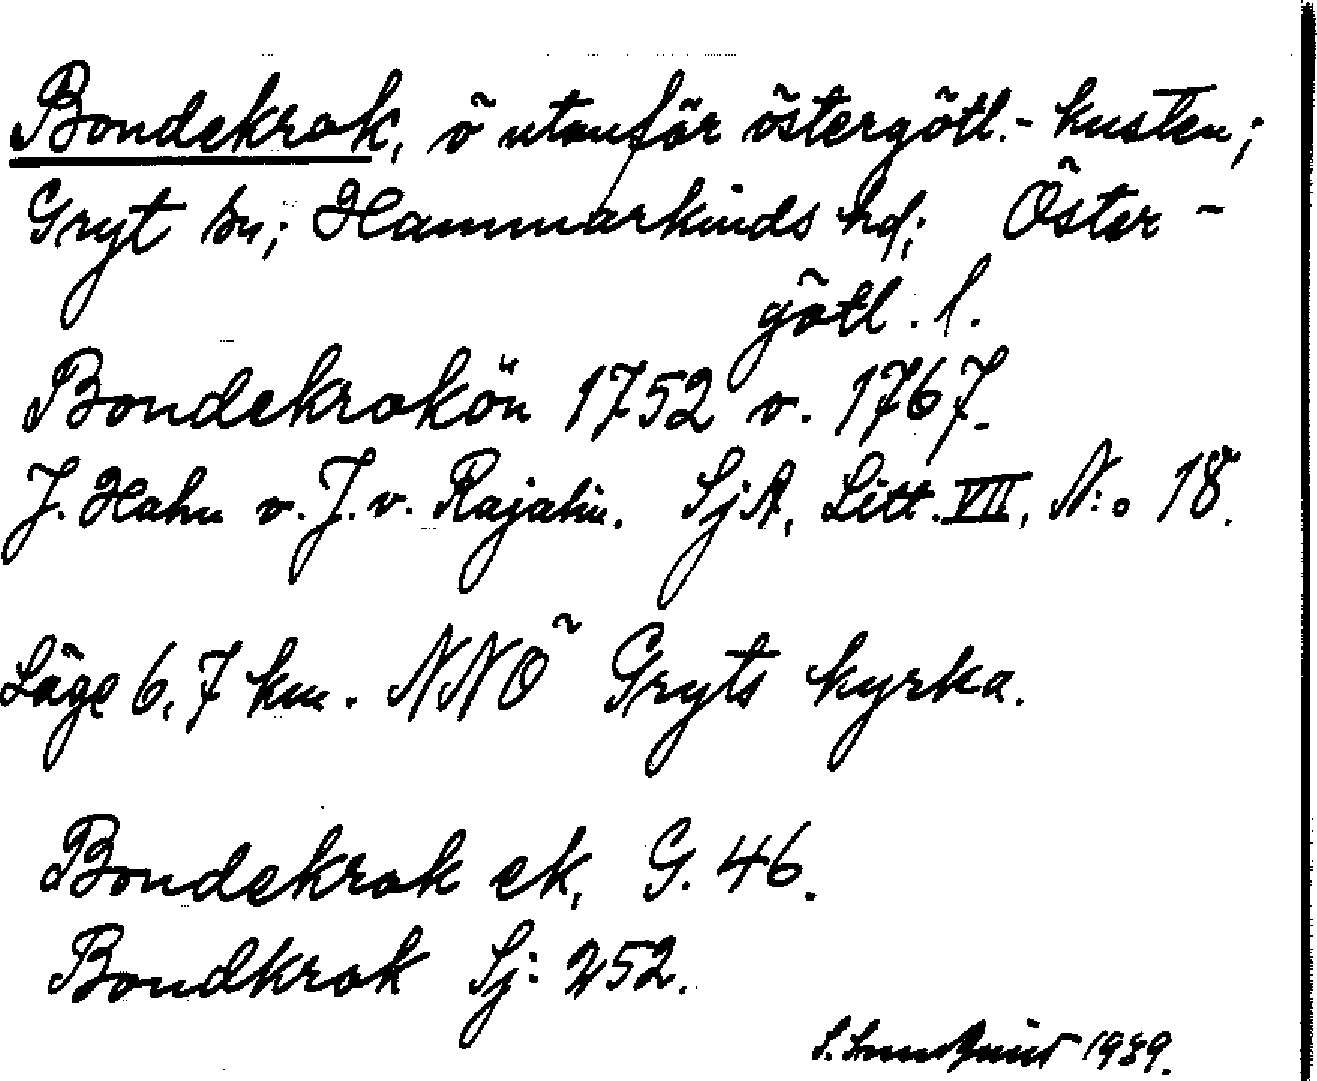 Bondekrok, ö utanför östergötl.- kusten;
Gryt sn; Hammarkinds hd; Öster-
götl. l.
Bondekrokön 1752 o. 1767.
J. Hahn o. J. v. Rajalin. SjA, Litt. VII, N:o 18.
Läge 6,7 km. NNÖ Gryts kyrka.
Bondekrok ek, G. 46.
Bondkrok Sj: 252.
S. 1939.